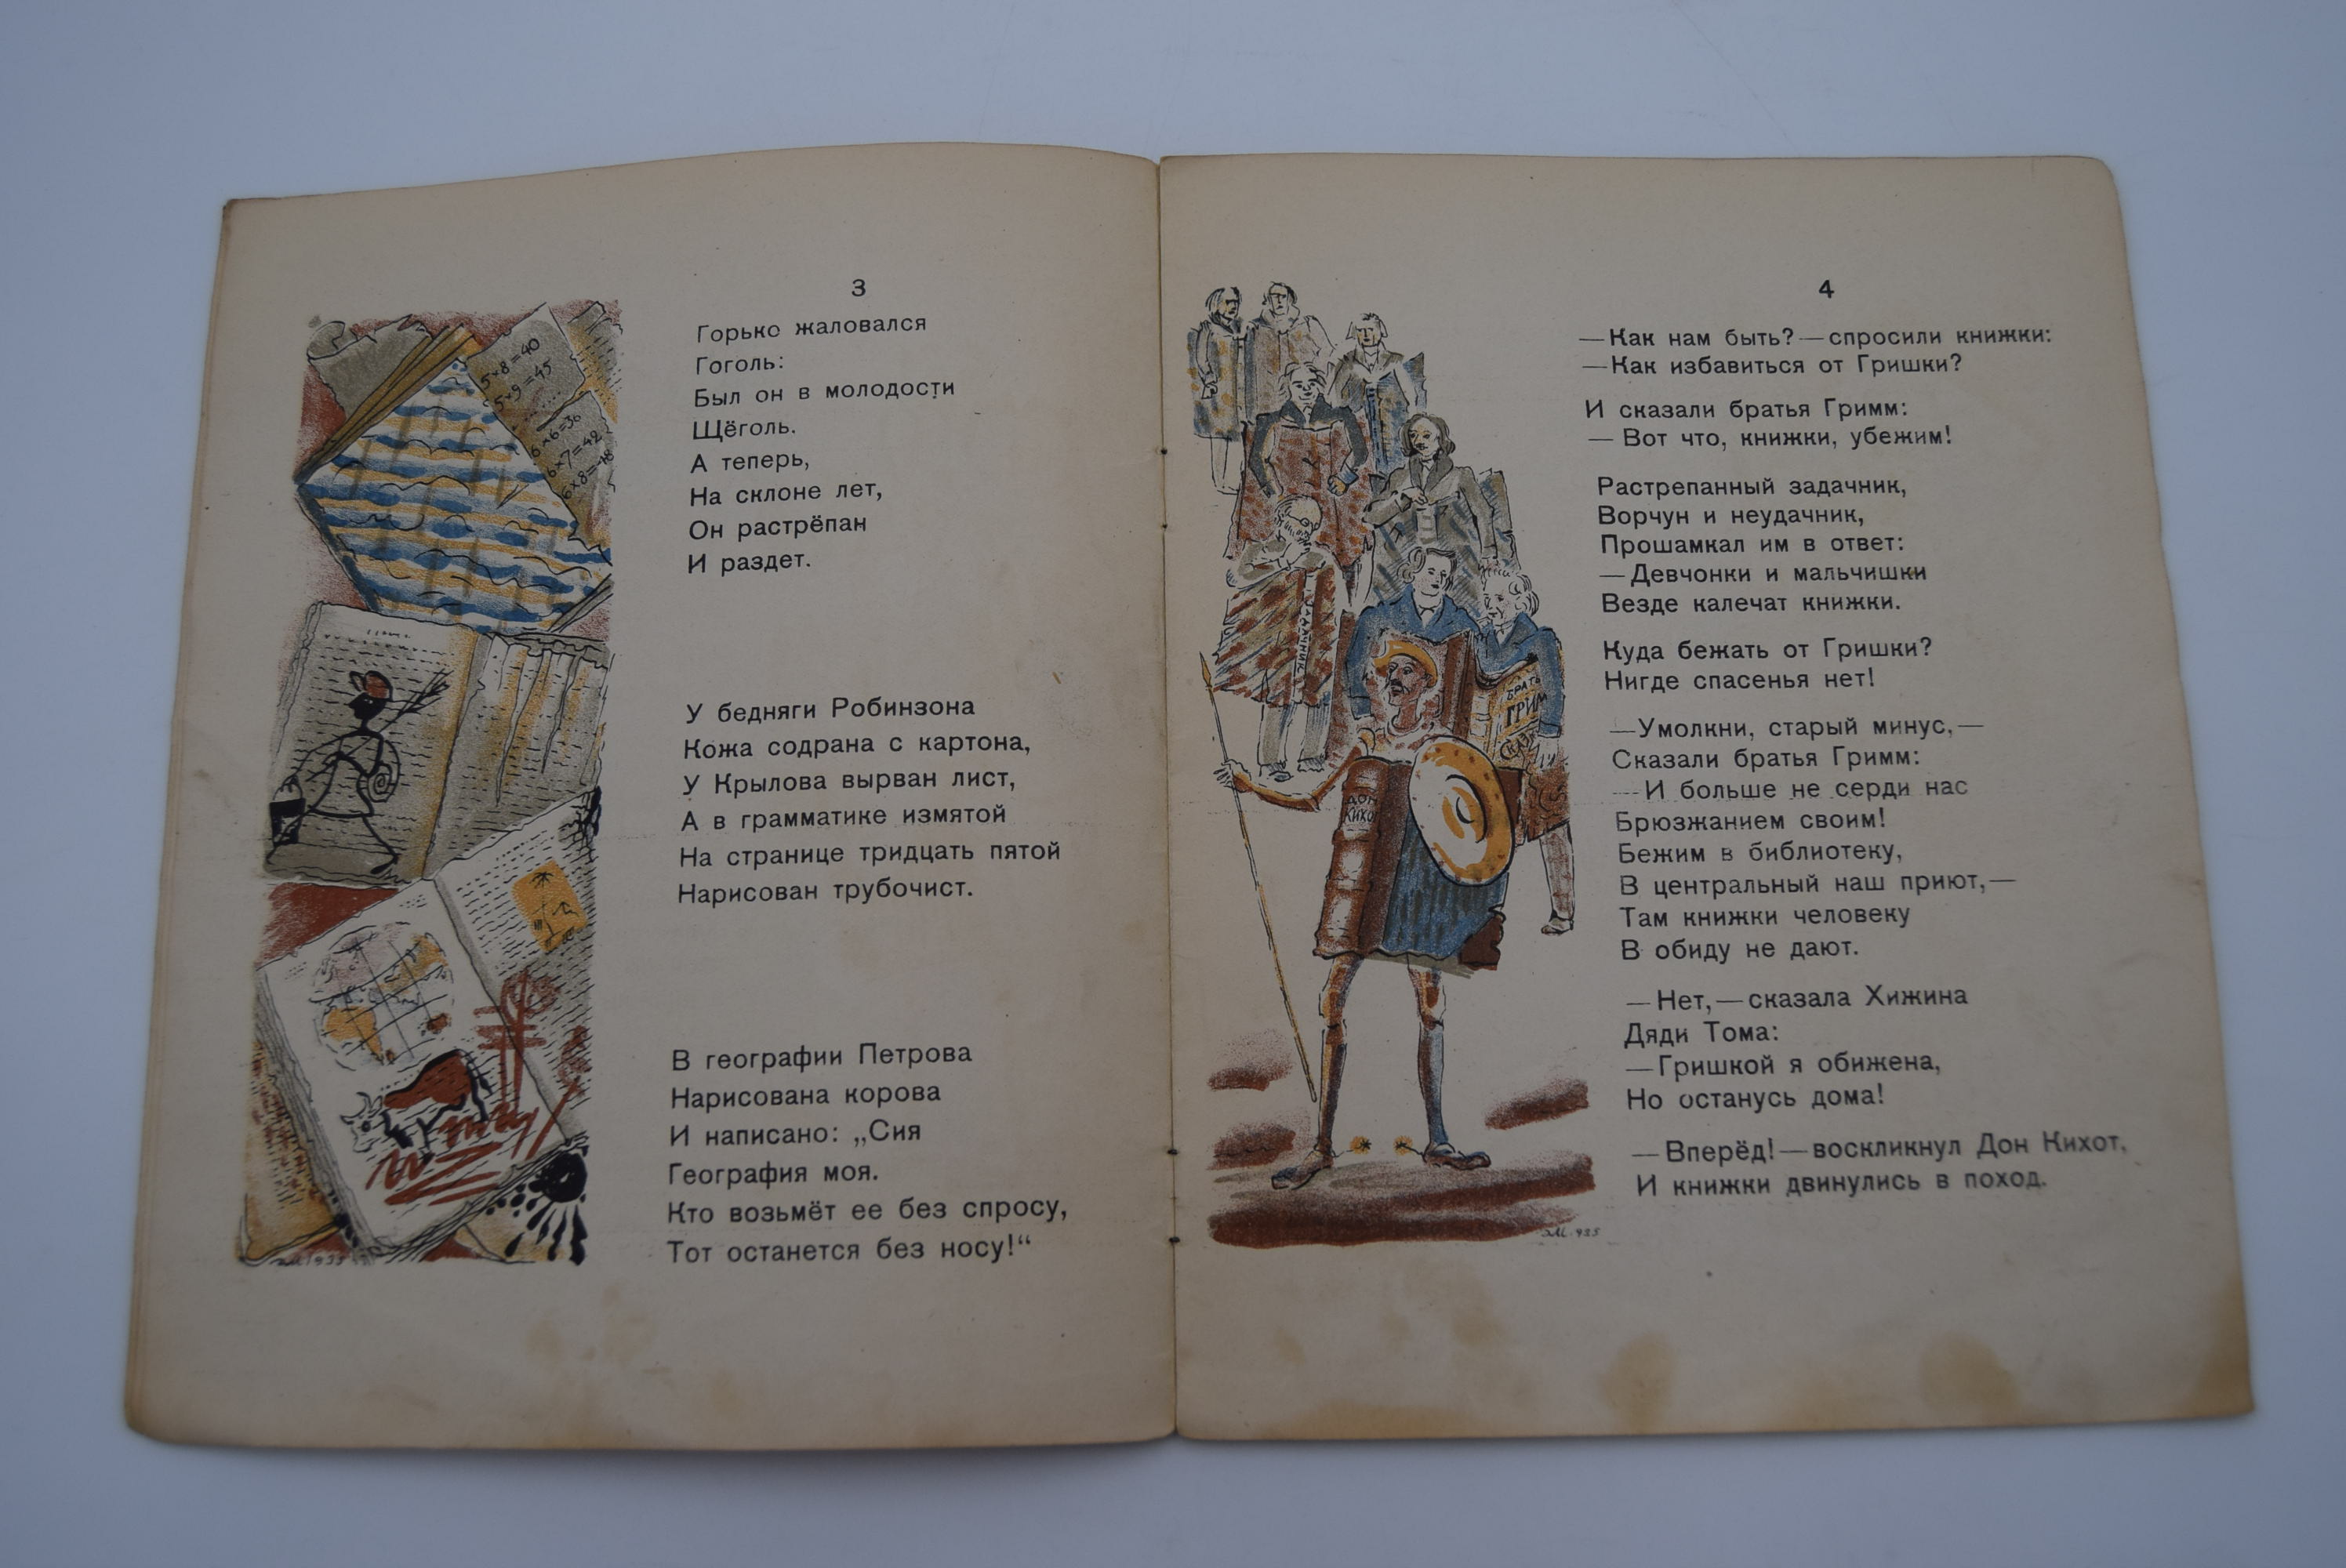 3
Горько жаловался
Гоголь:
Был он в молодости
Щёголь.
А теперь,
На склоне лет,
Он растрёпан
И раздет.
У бедняги Робинзона
Кожа содрана с картона,
У Крылова вырван лист,
А в грамматике измятой
На странице тридцать пятой
Нарисован трубочист.
В географии Петрова
Нарисована корова
И написано: „Сия
География моя.
Кто возьмёт ее без спросу,
Тот останется без носу!“
5×8=40
5×9=45
6×6=36
6×7=42
6×8=48
4
—Как нам быть?—спросили книжки:
—Как избавиться от Гришки?
И сказали братья Гримм:
— Вот что, книжки, убежим!
Растрепанный задачник,
Ворчун и неудачник,
Прошамкал им в ответ:
—Девчонки и мальчишки
Везде калечат книжки.
Куда бежать от Гришки?
Нигде спасенья нет!
—Умолкни, старый минус,—
Сказали братья Гримм:
—И больше не серди нас
Брюзжанием своим!
Бежим в библиотеку,
В центральный наш приют,—
Там книжки человеку
В обиду не дают.
—Нет,—сказала Хижина
Дяди Тома:
—Гришкой я обижена,
Но останусь дома!
—Вперёд!—воскликнул Дон Кихот,
И книжки двинулись в поход.
ЗАДАЧНИК
БРАТЬ
ГРИМ
СКАЗК
ДОН
КИХО